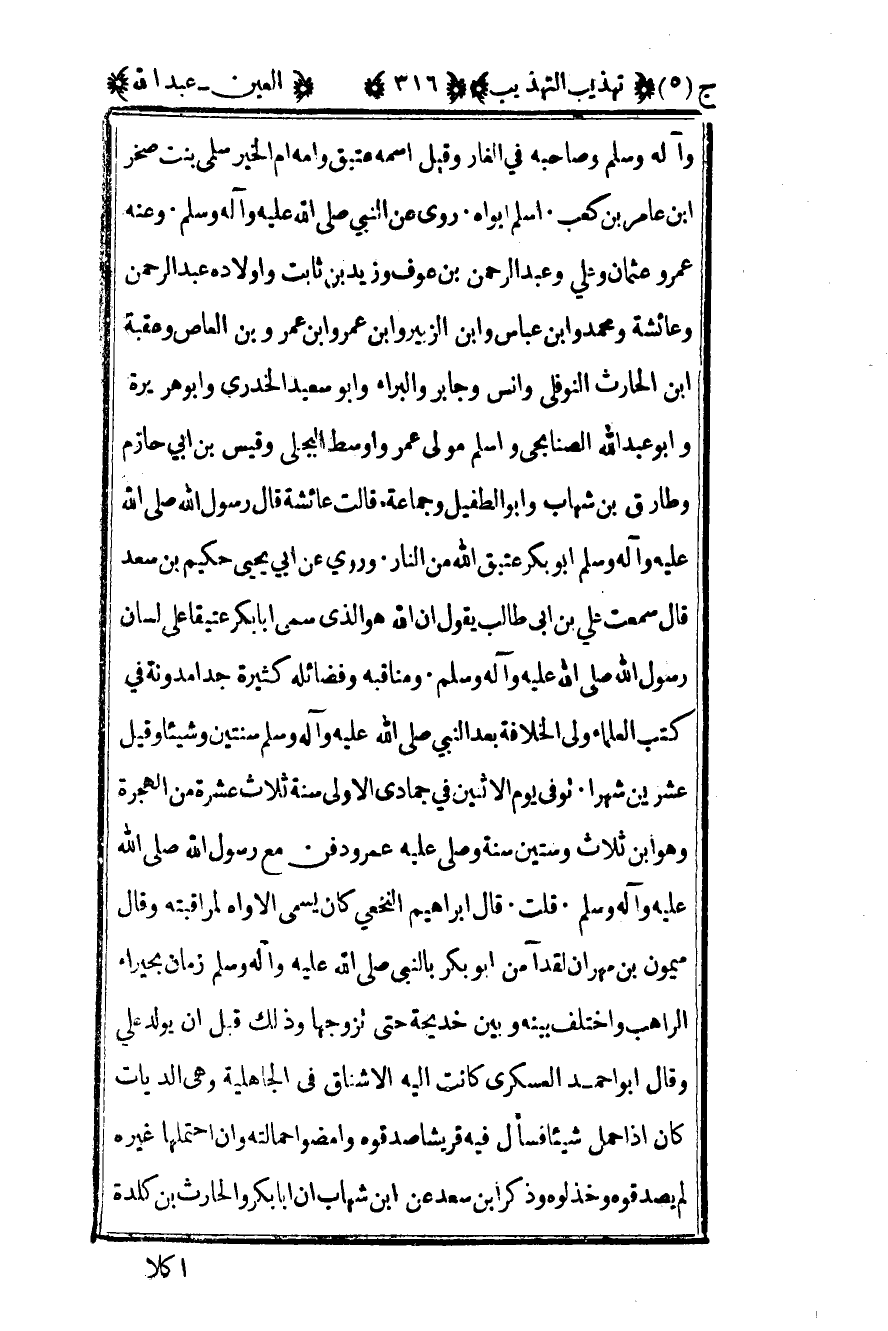 ج (٥) تهذيب التهذيب ٣١٦ العين - عبدالله
وآله وسلم وصاحبه في الغار وقيل اسمه عتيق وامه ام الخير سلمى بنت صخر
ابن عامر بن كعب ٠ اسلم ابواه ٠ روى عن النبي صلى الله عليه وآله وسلم ٠ وعنه
عمرو عثمان وعلي وعبدالرحمن بن عوف وزيد بن ثابت واولاده عبدالرحمن
وعائشة ومحمد وابن عباس وابن الزبير وابن عمر وابن عمر و بن العاص وعقبة
ابن الحارث النوفلي وانس وجابر والبراء وابو سعيد الخدري وابوهر يرة
و ابوعبدالله الصنابحى و اسلم مولى عمر واوسط البجلي وقيس بن ابي حازم
وطارق بن شهاب وابو الطفيل وجماعة ٠ قالت عائشة قال رسول الله صلى الله
عليه وآله وسلم ابوبكر عتيق الله من النار ٠ وروي عن ابي يحيى حكيم بن سعد
قال سمعت علي بن ابى طالب يقول ان الله هو الذى سمى ابابكر عتيقا على لسان
رسول الله صلى الله عليه وآله وسلم ٠ ومناقبه وفضائله كثيرة جدا مدونة في
كتب العلماء ولى الخلافة بعد النبي صلى الله عليه وآله وسلم سنتين وشيئا وقيل
عشرين شهرا ٠ توفى يوم الاثنين في جمادى الاولى سنة ثلاث عشرة من الهجرة
وهو ابن ثلاث وستين سنة وصلى عليه عمر ودفن مع رسول الله صلى الله
عليه وآله وسلم ٠ قلت ٠ قال ابراهيم النخعي كان يسمى الاواه لمراقبته وقال
ميمون بن مهران لقد آمن ابو بكر بالنبي صلى الله عليه وآله وسلم زمان بحيراء
الراهب واختلف بينه و بين خديجة حتى تزوجها وذلك قبل ان يولد علي
وقال ابواحمد العسكرى كانت اليه الاشناق فى الجاهلية وهى الديات
كان اذا حمل شيئا فسأل فيه قريشا صدقوه وامضوا حمالته وان احتملها غيره
لم يصدقوه وخذلوه وذكر ابن سعد عن ابن شهاب ان ابابكر والحارث بن كلدة
اكلا